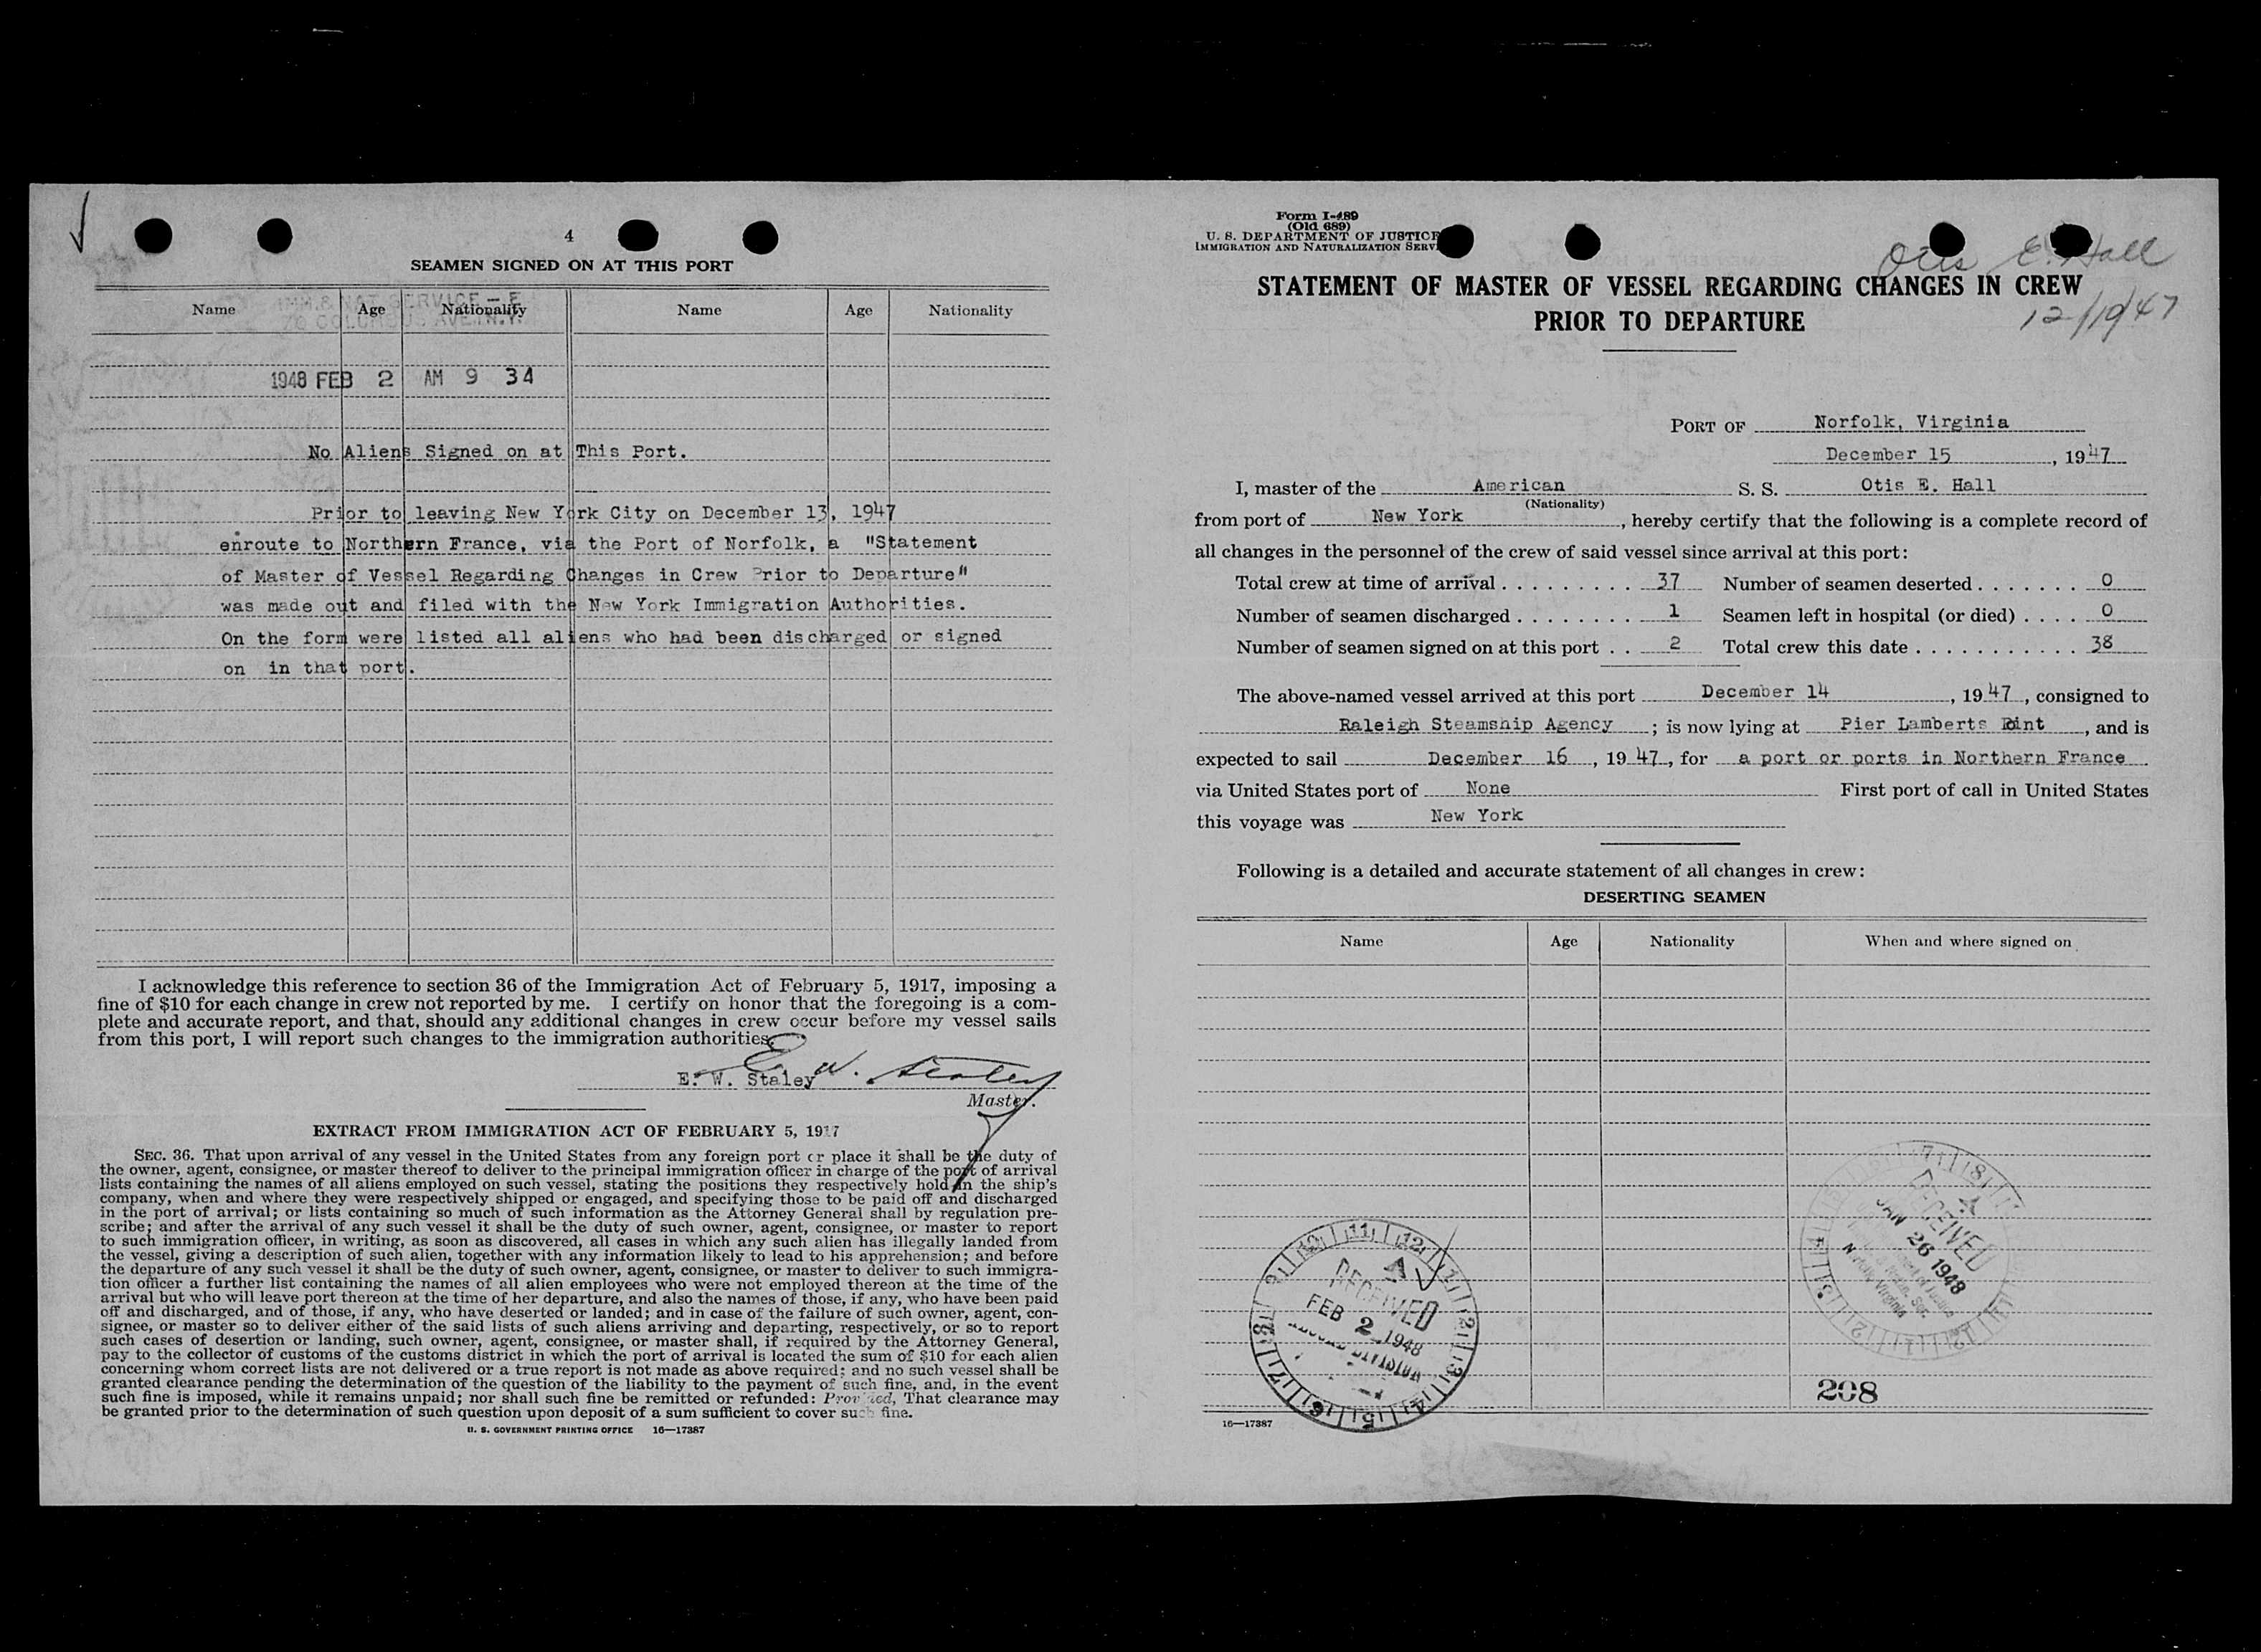 4
SEAMEN SIGNED ON AT THIS PORT
IMM. & NAT. SERVICE — F
70 COLUMBUS AVE. N.Y.
Name Age Nationality Name Age Nationality
1948 FEB 2 AM 9 34
No Aliens Signed on at This Port.
Prior to leaving New York City on December 13, 1947
enroute to Northern France, via the Port of Norfolk, a "Statement
of Master of Vessel Regarding Changes in Crew Prior to Departure"
was made out and filed with the New York Immigration Authorities.
On the form were listed all aliens who had been discharged or signed
on in that port.
I acknowledge this reference to section 36 of the Immigration Act of February 5, 1917, imposing a
fine of $10 for each change in crew not reported by me. I certify on honor that the foregoing is a com-
plete and accurate report, and that, should any additional changes in crew occur before my vessel sails
from this port, I will report such changes to the immigration authorities.
E. W. Staley
E. W. Staley
Master.
EXTRACT FROM IMMIGRATION ACT OF FEBRUARY 5, 1917
SEC. 36. That upon arrival of any vessel in the United States from any foreign port or place it shall be the duty of
the owner, agent, consignee, or master thereof to deliver to the principal immigration officer in charge of the port of arrival
lists containing the names of all aliens employed on such vessel, stating the positions they respectively hold in the ship's
company, when and where they were respectively shipped or engaged, and specifying those to be paid off and discharged
in the port of arrival; or lists containing so much of such information as the Attorney General shall by regulation pre-
scribe; and after the arrival of any such vessel it shall be the duty of such owner, agent, consignee, or master to report
to such immigration officer, in writing, as soon as discovered, all cases in which any such alien has illegally landed from
the vessel, giving a description of such alien, together with any information likely to lead to his apprehension; and before
the departure of any such vessel it shall be the duty of such owner, agent, consignee, or master to deliver to such immigra-
tion officer a further list containing the names of all alien employees who were not employed thereon at the time of the
arrival but who will leave port thereon at the time of her departure, and also the names of those, if any, who have been paid
off and discharged, and of those, if any, who have deserted or landed; and in case of the failure of such owner, agent, con-
signee, or master so to deliver either of the said lists of such aliens arriving and departing, respectively, or so to report
such cases of desertion or landing, such owner, agent, consignee, or master shall, if required by the Attorney General,
pay to the collector of customs of the customs district in which the port of arrival is located the sum of $10 for each alien
concerning whom correct lists are not delivered or a true report is not made as above required; and no such vessel shall be
granted clearance pending the determination of the question of the liability to the payment of such fine, and, in the event
such fine is imposed, while it remains unpaid; nor shall such fine be remitted or refunded: Provided, That clearance may
be granted prior to the determination of such question upon deposit of a sum sufficient to cover such fine.
U. S. GOVERNMENT PRINTING OFFICE 16—17387
Form I-489
(Old 689)
U. S. DEPARTMENT OF JUSTICE
IMMIGRATION AND NATURALIZATION SERV
Otis E. Hall
12/19/47
STATEMENT OF MASTER OF VESSEL REGARDING CHANGES IN CREW
PRIOR TO DEPARTURE
PORT OF Norfolk, Virginia
December 15, 1947
I, master of the American S. S. Otis E. Hall
(Nationality)
from port of New York, hereby certify that the following is a complete record of
all changes in the personnel of the crew of said vessel since arrival at this port:
Total crew at time of arrival . . . . . . . . . . 37 Number of seamen deserted . . . . . . . 0
Number of seamen discharged . . . . . . . . 1 Seamen left in hospital (or died) . . . . 0
Number of seamen signed on at this port . . 2 Total crew this date . . . . . . . . . . . . 38
The above-named vessel arrived at this port December 14, 1947, consigned to
Raleigh Steamship Agency; is now lying at Pier Lamberts Point, and is
expected to sail December 16, 1947, for a port or ports in Northern France
via United States port of None First port of call in United States
this voyage was New York
Following is a detailed and accurate statement of all changes in crew:
DESERTING SEAMEN
Name Age Nationality When and where signed on
A
RECEIVED
JAN 26 1948
Norfolk, Virginia
A
RECEIVED
FEB 2 1948
RECORD DIVISION
208
16—17387